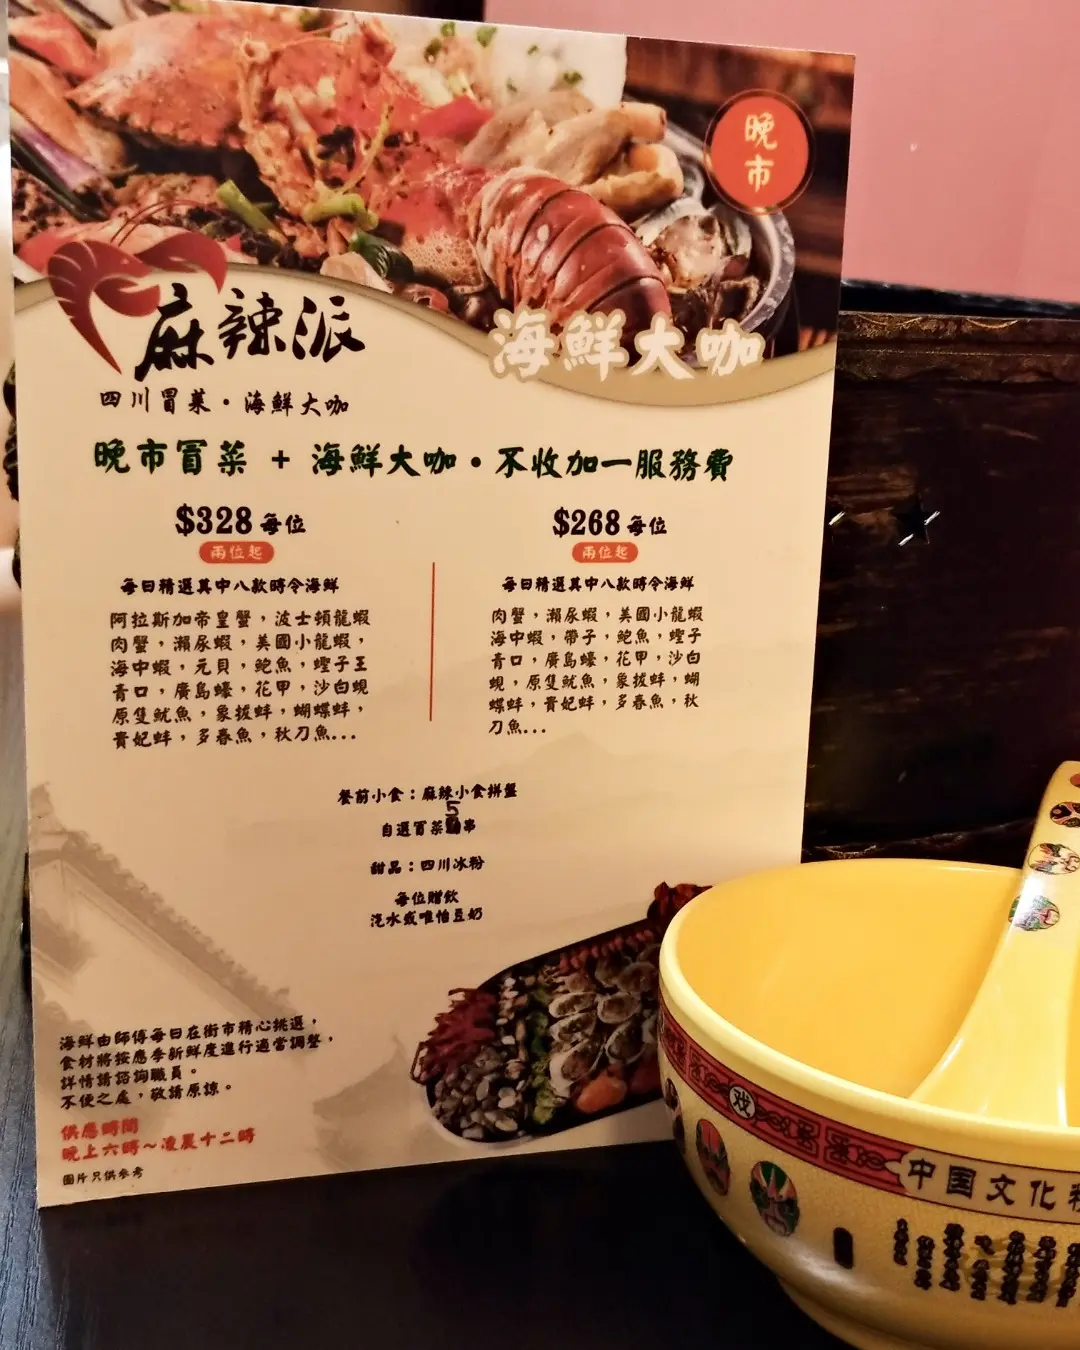 晚
市
麻辣派
海鮮大咖
四川冒菜·海鮮大咖
晚市冒菜 + 海鮮大咖·不收加一服務費
$328 每位
兩位起
每日精選其中八款時令海鮮
阿拉斯加帝皇蟹，波士頓龍蝦
肉蟹，瀨尿蝦，美國小龍蝦，
海中蝦，元貝，鮑魚，蟶子王
青口，廣島蠔，花甲，沙白蜆
原隻魷魚，象拔蚌，蝴蝶蚌，
貴妃蚌，多春魚，秋刀魚...
$268 每位
兩位起
每日精選其中八款時令海鮮
肉蟹，瀨尿蝦，美國小龍蝦
海中蝦，帶子，鮑魚，蟶子
青口，廣島蠔，花甲，沙白
蜆，原隻魷魚，象拔蚌，蝴
蝶蚌，貴妃蚌，多春魚，秋
刀魚...
餐前小食：麻辣小食拼盤
自選冒菜5串
甜品：四川冰粉
每位贈飲
汽水或唯怡豆奶
海鮮由師傅每日在街市精心挑選，
食材將按應季新鮮度進行適當調整，
詳情請諮詢職員。
不便之處，敬請原諒。
供應時間
晚上六時～凌晨十二時
圖片只供參考
戏
中国文化